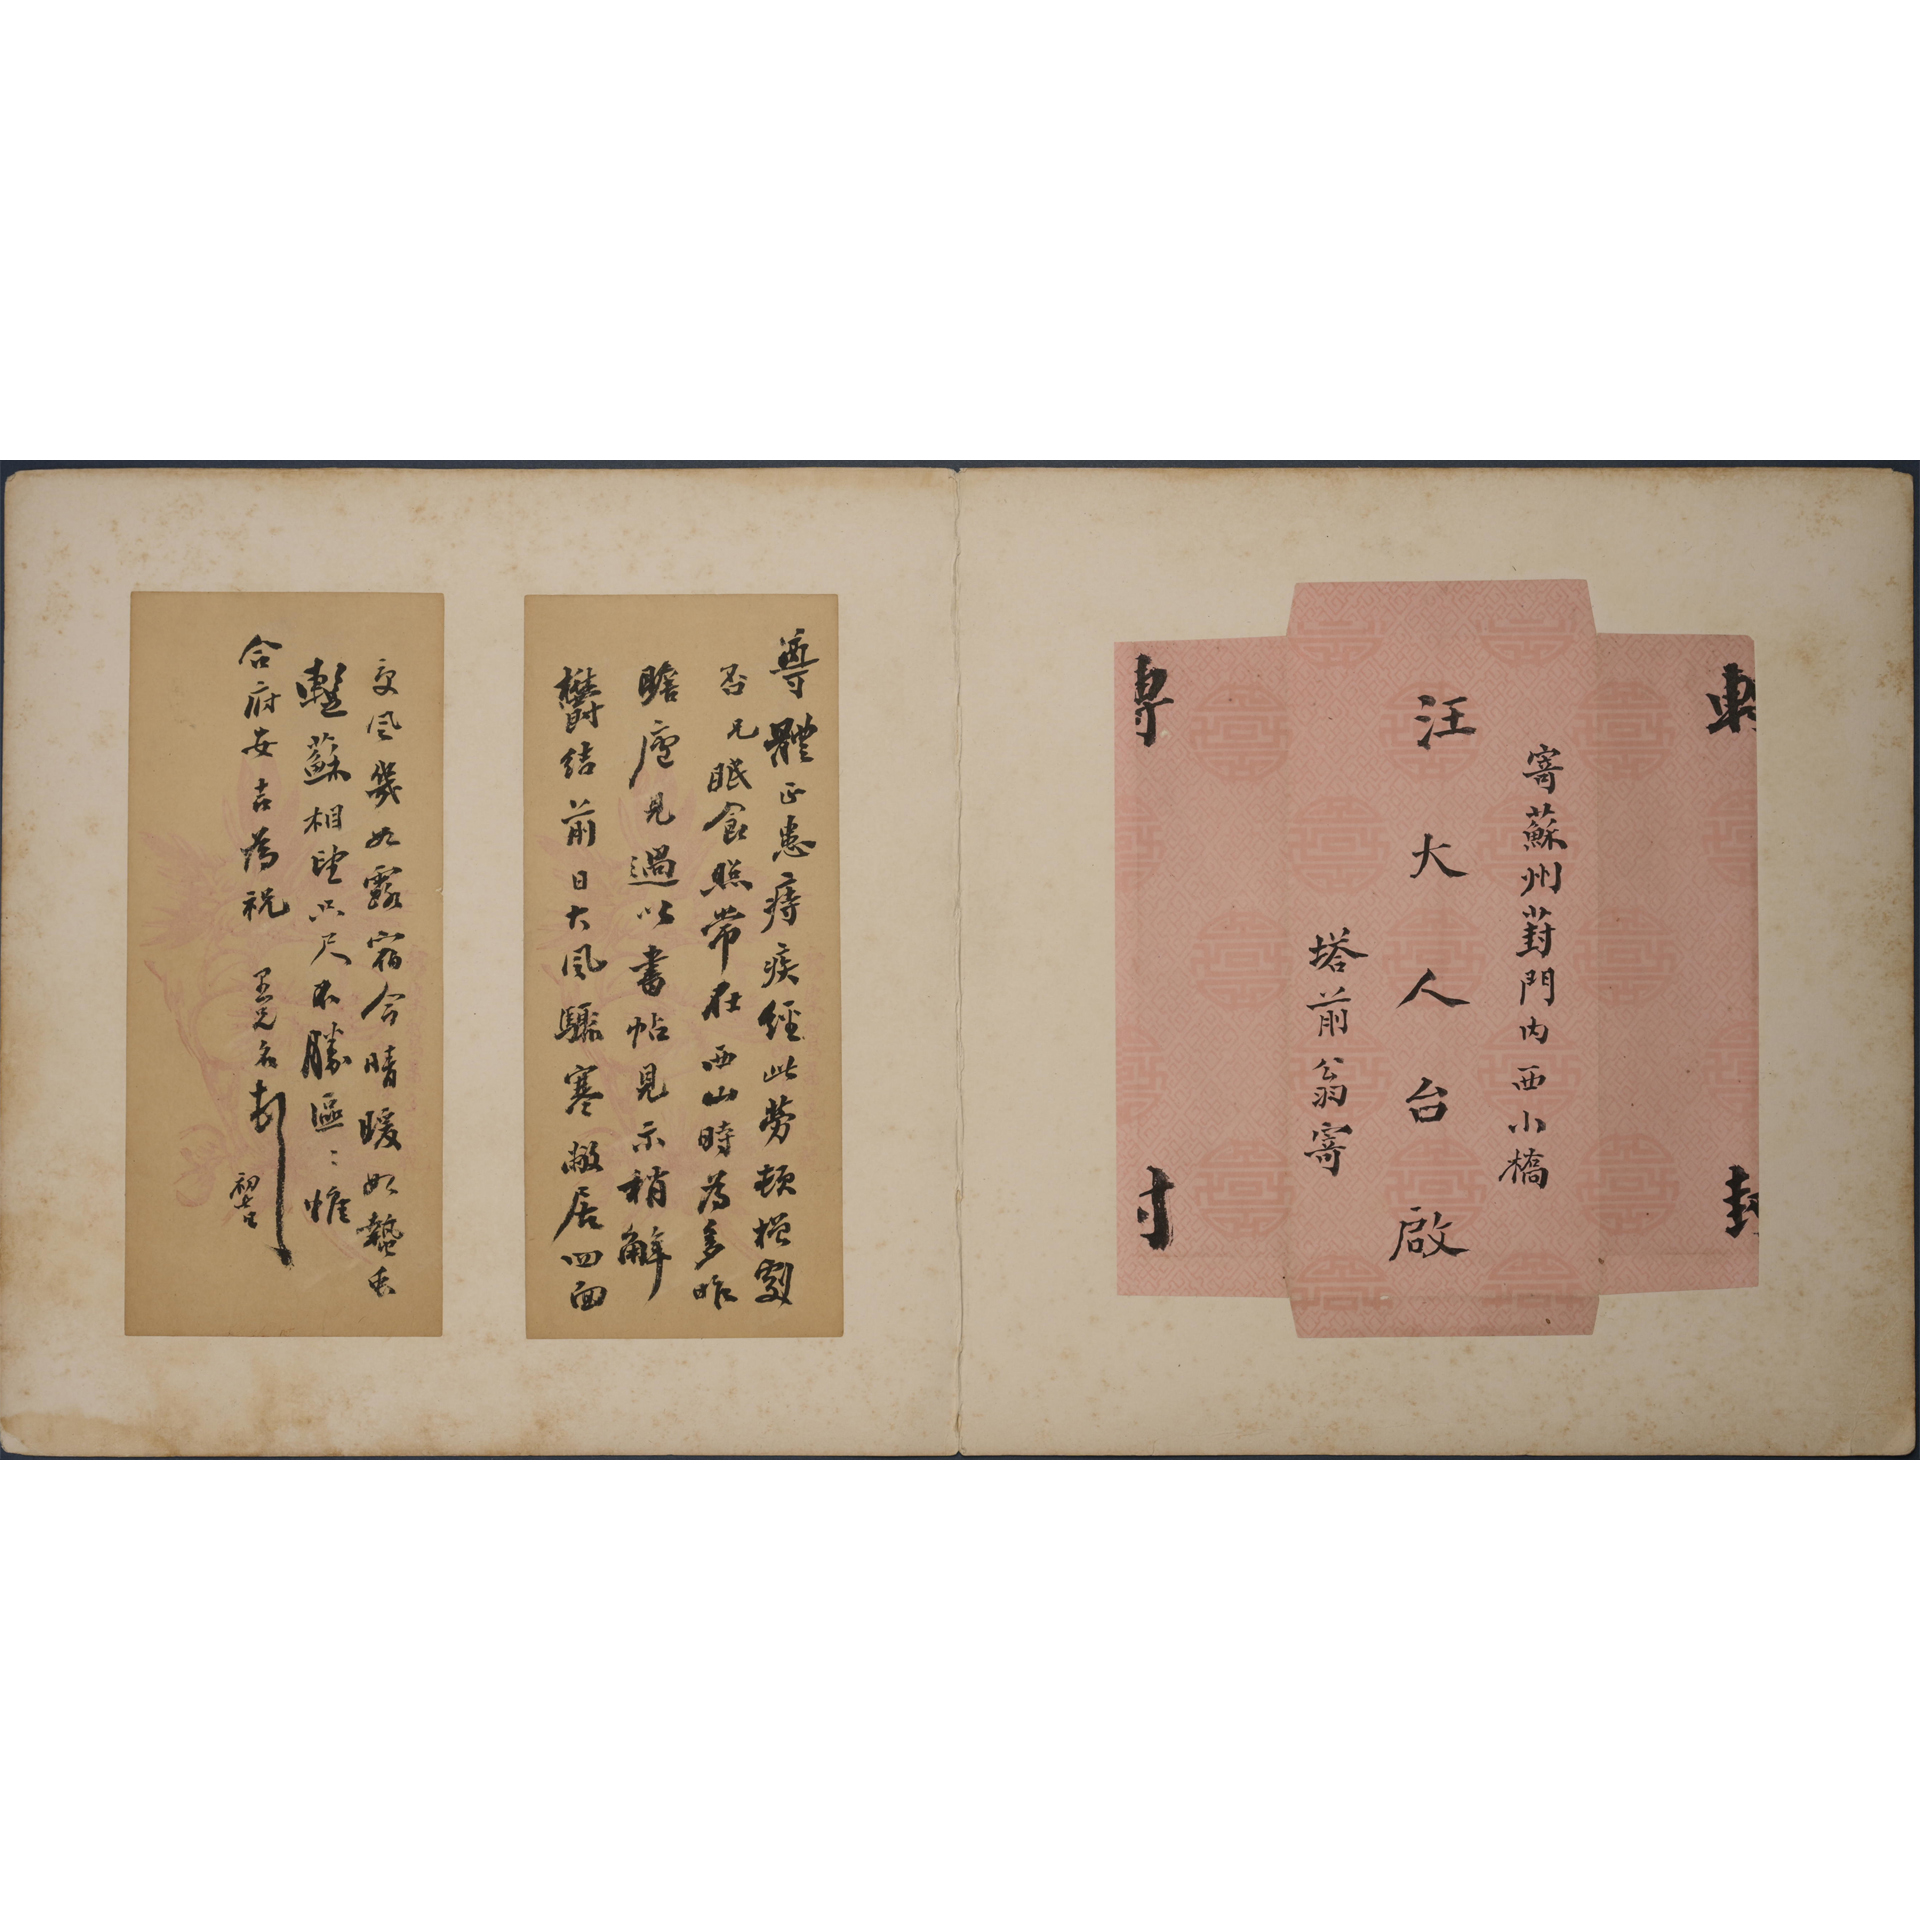 寄蘇州葑門內西小橋
汪大人台啟
塔前翁寄
尊體正患痔疾經此勞頓增劇
否兄眠食照常在西山時為多昨
瞻廬見過以書帖見示稍解
鬱結前日大風驟寒敝居四面
受風幾如露宿今晴暖如蟄虫
蘇相望咫尺不勝區〻惟
合府安吉為祝
名
初七日